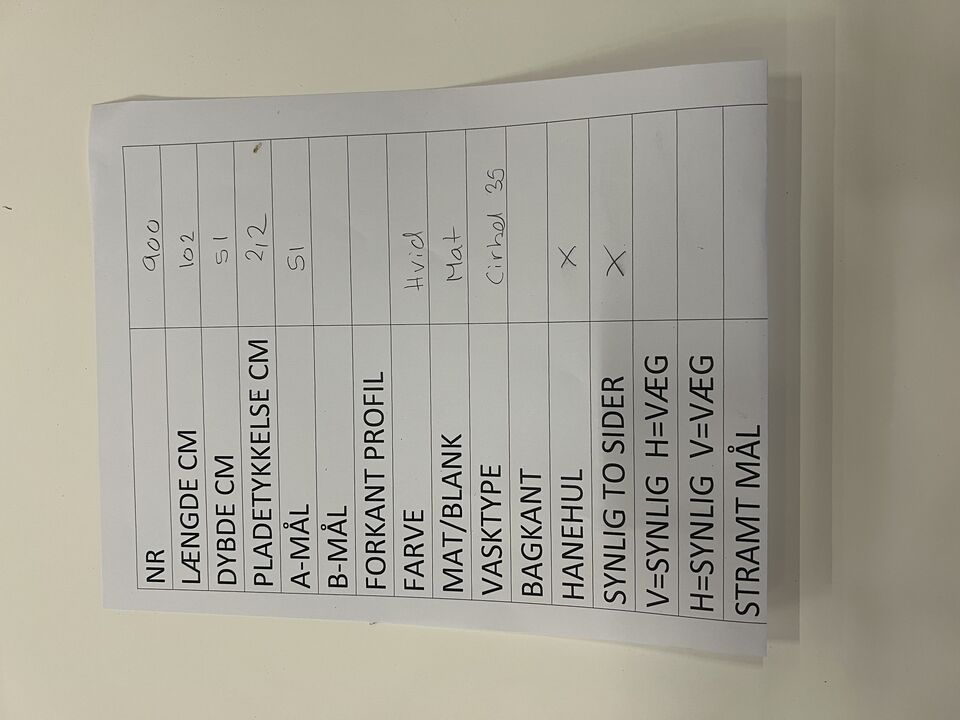 NR 900
LÆNGDE CM 102
DYBDE CM 51
PLADETYKKELSE CM 2,2
A-MÅL 51
B-MÅL
FORKANT PROFIL
FARVE Hvid
MAT/BLANK Mat
VASKTYPE 35
BAGKANT
HANEHUL X
SYNLIG TO SIDER X
V=SYNLIG H=VÆG
H=SYNLIG V=VÆG
STRAMT MÅL